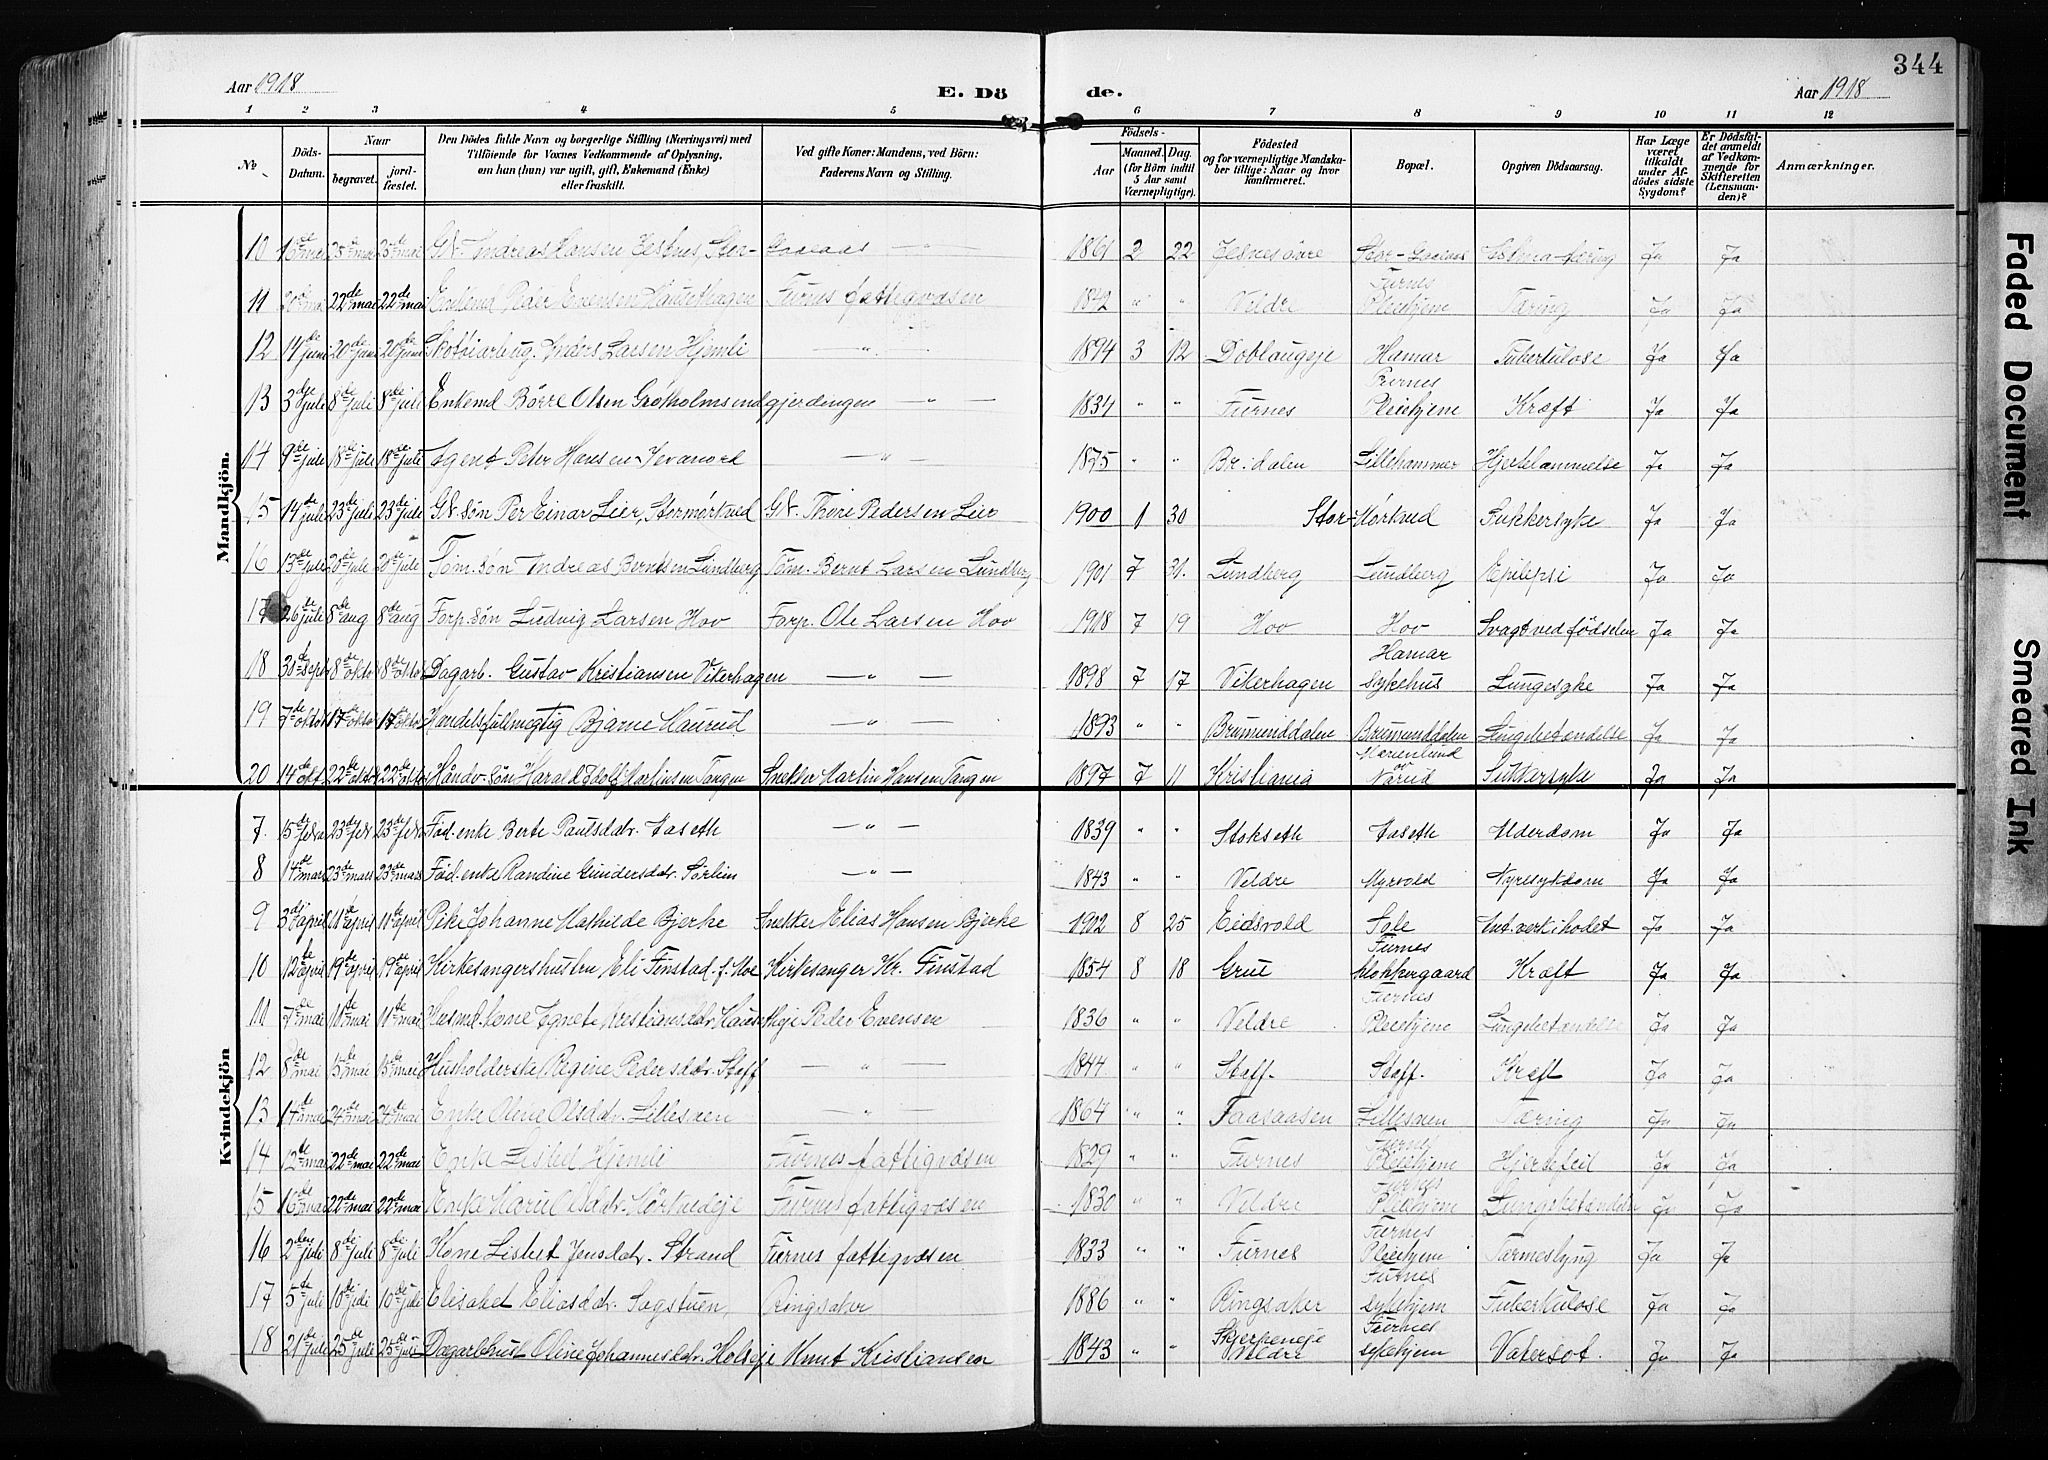 344
Aar 1918 E. Dö de. Aar 1918
1 2 3 4 5 6 7 8 9 10 11 12
№
Döds-Datum.
Naar begravet. jordfæstet.
Den Dödes fulde Navn og borgerlige Stilling (Næringsvei) med Tilföiende for Voxnes Vedkommende af Oplysning, om han (hun) var ugift, gift, Enkemand (Enke) eller fraskilt.
Ved gifte Koner: Mandens, ved Börn: Faderens Navn og Stilling.
Födsels- Aar Maaned. Dag. (for Börn indtil 5 Aar samt Værnepligtige).
Födested og for værnepligtige Mandskaber tillige: Naar og hvor konfirmeret.
Bopæl.
Opgiven Dödsaarsag.
Har Læge været tilkaldt under Afdödes sidste Sygdom?
Er Dödsfaldet anmeldt af Vedkommende for Skifteretten (Lensmanden)?
Anmærkninger.
Mandkjön.
10 16de mai 25de mai 25de mai Andreas Hansen Jesnes Stor- 1861 2 22 Jesnes övre Ja Ja
11 20de mai 22de mai 22de mai Peder Evensen Furnes fattigvæsen 1842 " " Veldre Furnes Pleiehjem Tæring Ja Ja
12 14de juni 20de juni 20de juni Skotöiarb ug. Anders Larsen Hjemli " 1894 3 12 Doblaugeje Hamar Tuberkulose Ja Ja
13 3dje juli 8de juli 8de juli Enkemd Börre Olsen Grøtholmsendgjerdengen — " — 1834 " " Furnes Furnes Pleiehjem Kræft Ja Ja
14 9de juli 18de juli 18de juli Agent Peter Hansen — " — 1875 " " Br.dalen Lillehammer Hjertelammelse Ja Ja
15 14de juli 23de juli 23de juli G. søn Per Einar Lier, Stormørkved G. Thore Pedersen Lier 1900 1 30 Stor-Mørkved Sukkersyke Ja Ja
16 13de juli 20de juli 20de juli Töm. søn Andreas Berntsen Lundberg Töm. Bernt Larsen Lundberg 1901 7 31. Lundberg Lundberg Epilepsi Ja Ja
17 26de juli 8de aug 8de aug Forp. søn Ludvig Larsen Hov Forp. Ole Larsen Hov 1918 7 19 Hov Hov Svagt ved födselen Ja Ja
18 30de sept 8de okto 8de okto Dagarb. Gustav Kristiansen Vikerhagen — " — 1898 7 17 Vikerhagen Hamar Sykehus Lungesyke Ja Ja
19 7de oktob 17de okto 17de okto Handelsfullmegtig Bjarne Haurud — " — 1893 " " Brumunddalen Brumunddalen Lungebetændelse Ja Ja
20 14de okt 22de okto 22de okto Håndv. søn Harald Adolf Martinsen Tangen Snekker Martin Hansen Tangen 1897 7 11 Kristiania Marienlund av Narud Sukkersyke Ja Ja
Kvindekjön
7 15de febr 23de febr 23de febr Föd. enke Berte Paulsdatr. Aaseth — " — 1839 " " Stokseth Aaseth Alderdom Ja Ja
8 14de mars 23de mars 23de mars Föd. enke Randine Gundersdatr. Sørlien — " — 1843 " " Veldre Myrvold Nyresykdom Ja Ja
9 3dje april 11de april 11de april Pike Johanne Mathilde Bjerke Snekker Elias Hansen Bjerke 1902 8 25 Eidsvold Ant. verk i hodet Ja Ja
10 12de april 19de april 19de april Kirkesangershustru Eli Finstad f. Moe Kirkesanger Kr. Finstad 1854 8 18 Grue Furnes klokkergaard Kræft Ja Ja
11 7de mai 11de mai 11de mai Husmd. kone Agnete Kristiansdatr. Peder Evensen 1836 " " Veldre Furnes Pleiehjem Lungebetændelse Ja Ja
12 8de mai 15de mai 15de mai Husholderske Regine Pedersdatr. Staff — " — 1844 " " Staff. Staff. Kræft Ja Ja
13 14de mai 24de mai 24de mai Enke Oline Olsdatr. Lillesæen — " — 1864 " " Faasaasen Lillesæen Tæring Ja Ja
14 12de mai 22de mai 22de mai Enke Lisbet Hjemli Furnes fattigvæsen 1829 " " Furnes Furnes Pleiehjem Hjertefeil Ja Ja
15 16de mai 22de mai 22de mai Enke Marie Olsdatr. Mørkvedeje Furnes fattigvæsen 1830 " " Veldre Furnes Pleiehjem Lungebetændelse Ja Ja
16 2den juli 8de juli 8de juli Kone Lisbet Jensdatr. Strand Furnes fattigvæsen 1833 " " Furnes Furnes Pleiehjem Tarmeslyng Ja Ja
17 5de juli 10de juli 10de juli Elisabet Eliasdatr. Sagstuen, Ringsaker 1886 " " Ringsaker Furnes sykehjem Tuberkulose Ja Ja
18 21de juli 25de juli 25de juli Dagarbhust. Oline Johannesdatr. Holseje Knut Kristiansen 1843 " " Skjerpeneje Veldre Furnes sykehjem Vatersot. Ja Ja
Faded Document
Smeared Ink